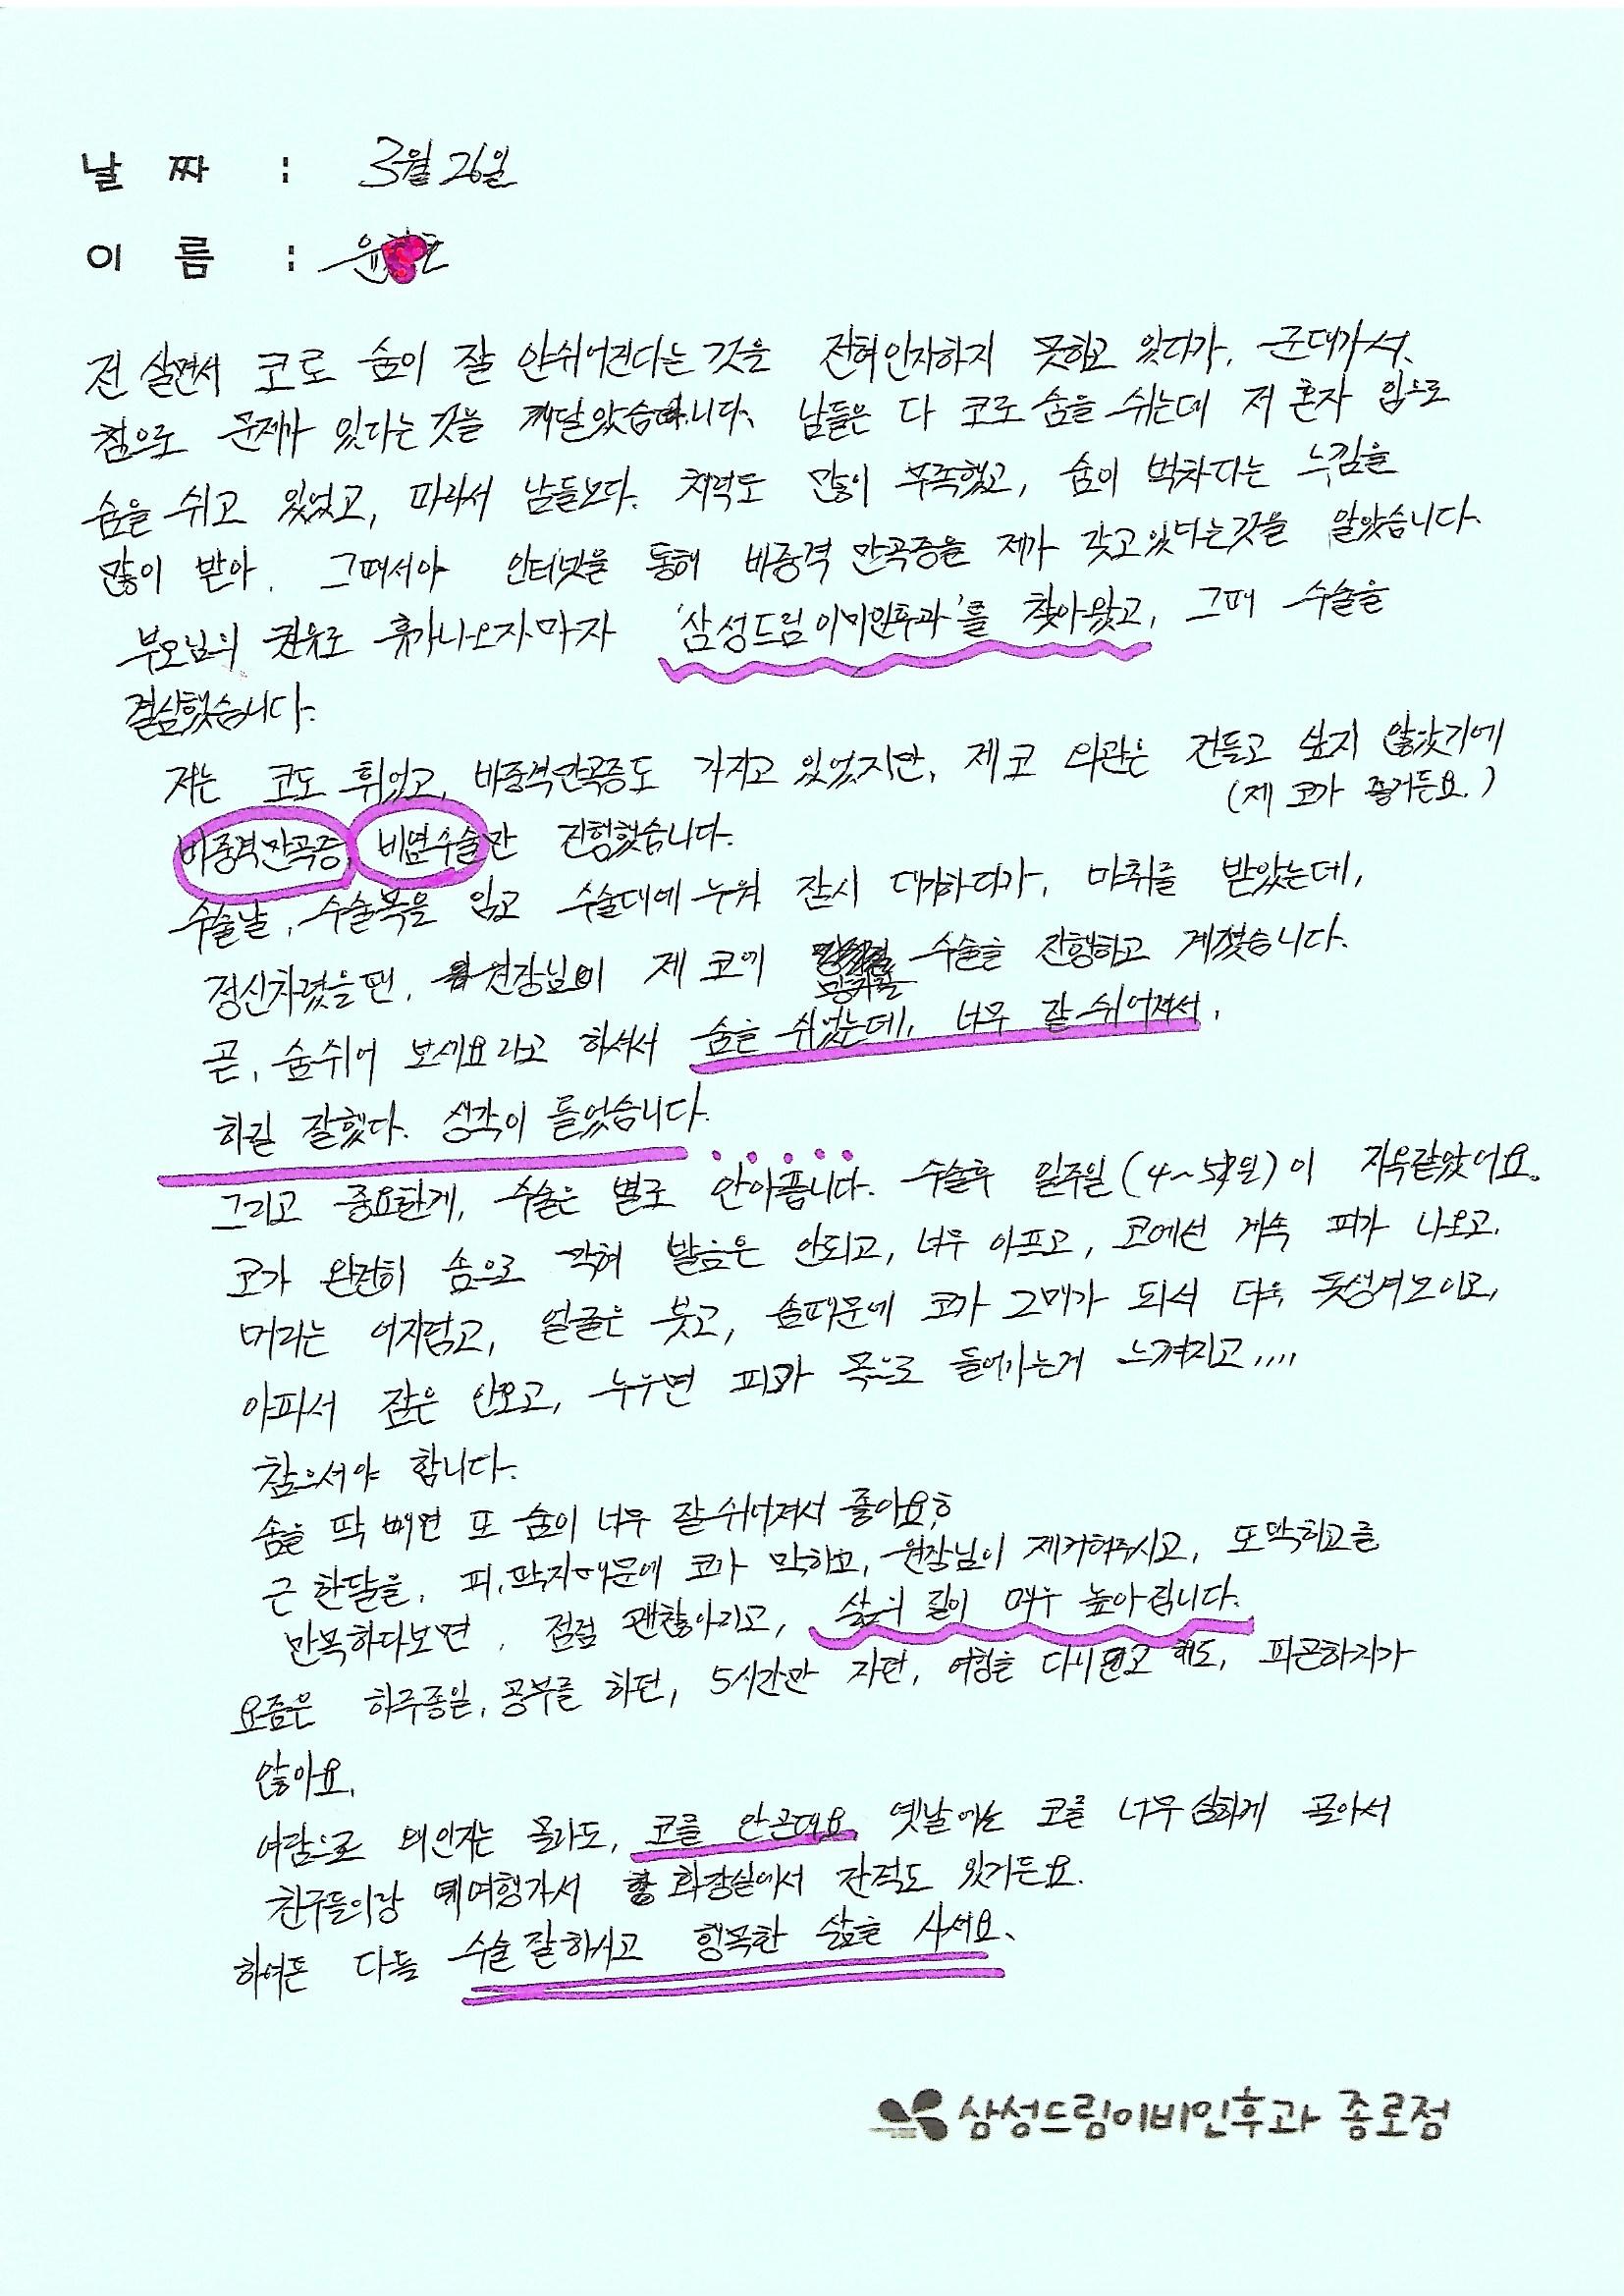 날 짜 : 3월 26일
이 름 : 윤
전 살면서 코로 숨이 잘 안쉬어진다는 것을 전혀인지하지 못하고 있다가, 군대가서,
참으로 문제가 있다는것을 깨달았습니다. 남들은 다 코로 숨을 쉬는데 저 혼자 입으로
숨을 쉬고 있었고, 따라서 남들보다. 체력도 많이 부족했고, 숨이 벅차다는 느낌을
많이 받아. 그때서야 인터넷을 통해 비중격 만곡증을 제가 갖고있다는것을 알았습니다.
부모님의 권유로 휴가나오자마자 '삼성드림이비인후과'를 찾아왔고, 그때 수술을
결심했습니다.
저는 코도 휘었고, 비중격만곡증도 가지고 있었지만, 제 코 외관은 건들고 싶지 않았기에
(제 코가 좋거든요.)
비중격만곡증, 비염수술만 진행했습니다.
수술날, 수술복을 입고 수술대에 누워 잠시 대기하다가, 마취를 받았는데,
정신차렸을땐, 원장님이 제 코에 수술을 진행하고 계셨습니다.
곧, 숨쉬어 보세요라고 하셔서 숨을 쉬었는데, 너무 잘 쉬어져서,
하길 잘했다. 생각이 들었습니다.
그리고 중요한게, 수술은 별로 안아픕니다. 수술후 일주일(4~5일)이 지옥같았어요.
코가 완전히 솜으로 막혀 발음은 안되고, 너무 아프고, 코에선 계속 피가 나오고,
머리는 어지럽고, 얼굴은 붓고, 솜때문에 코가 그매가 되서 더욱 못생겨보이고,
아파서 잠은 안오고, 누우면 피가 목으로 들어가는게 느껴지고,,,,
참으셔야 합니다.
솜을 딱 빼면 또 숨이 너무 잘쉬어져서 좋아요ㅎ
근 한달을, 피,딱지때문에 코가 막히고, 원장님이 제거해주시고, 또막히고를
반복하다보면, 점점 괜찮아지고, 삶의 질이 매우 높아집니다.
요즘은 하루종일, 공부를 하던, 5시간만 자던, 여행을 다시 해도, 피곤하지가
않아요.
여담으로 왜인지는 몰라도, 코를 안곤대요. 옛날에는 코를 너무 심하게 골아서
친구들이랑 여행가서 화장실에서 잔적도 있거든요.
하여튼 다들 수술 잘하시고 행복한 삶을 사세요.
삼성드림이비인후과 종로점